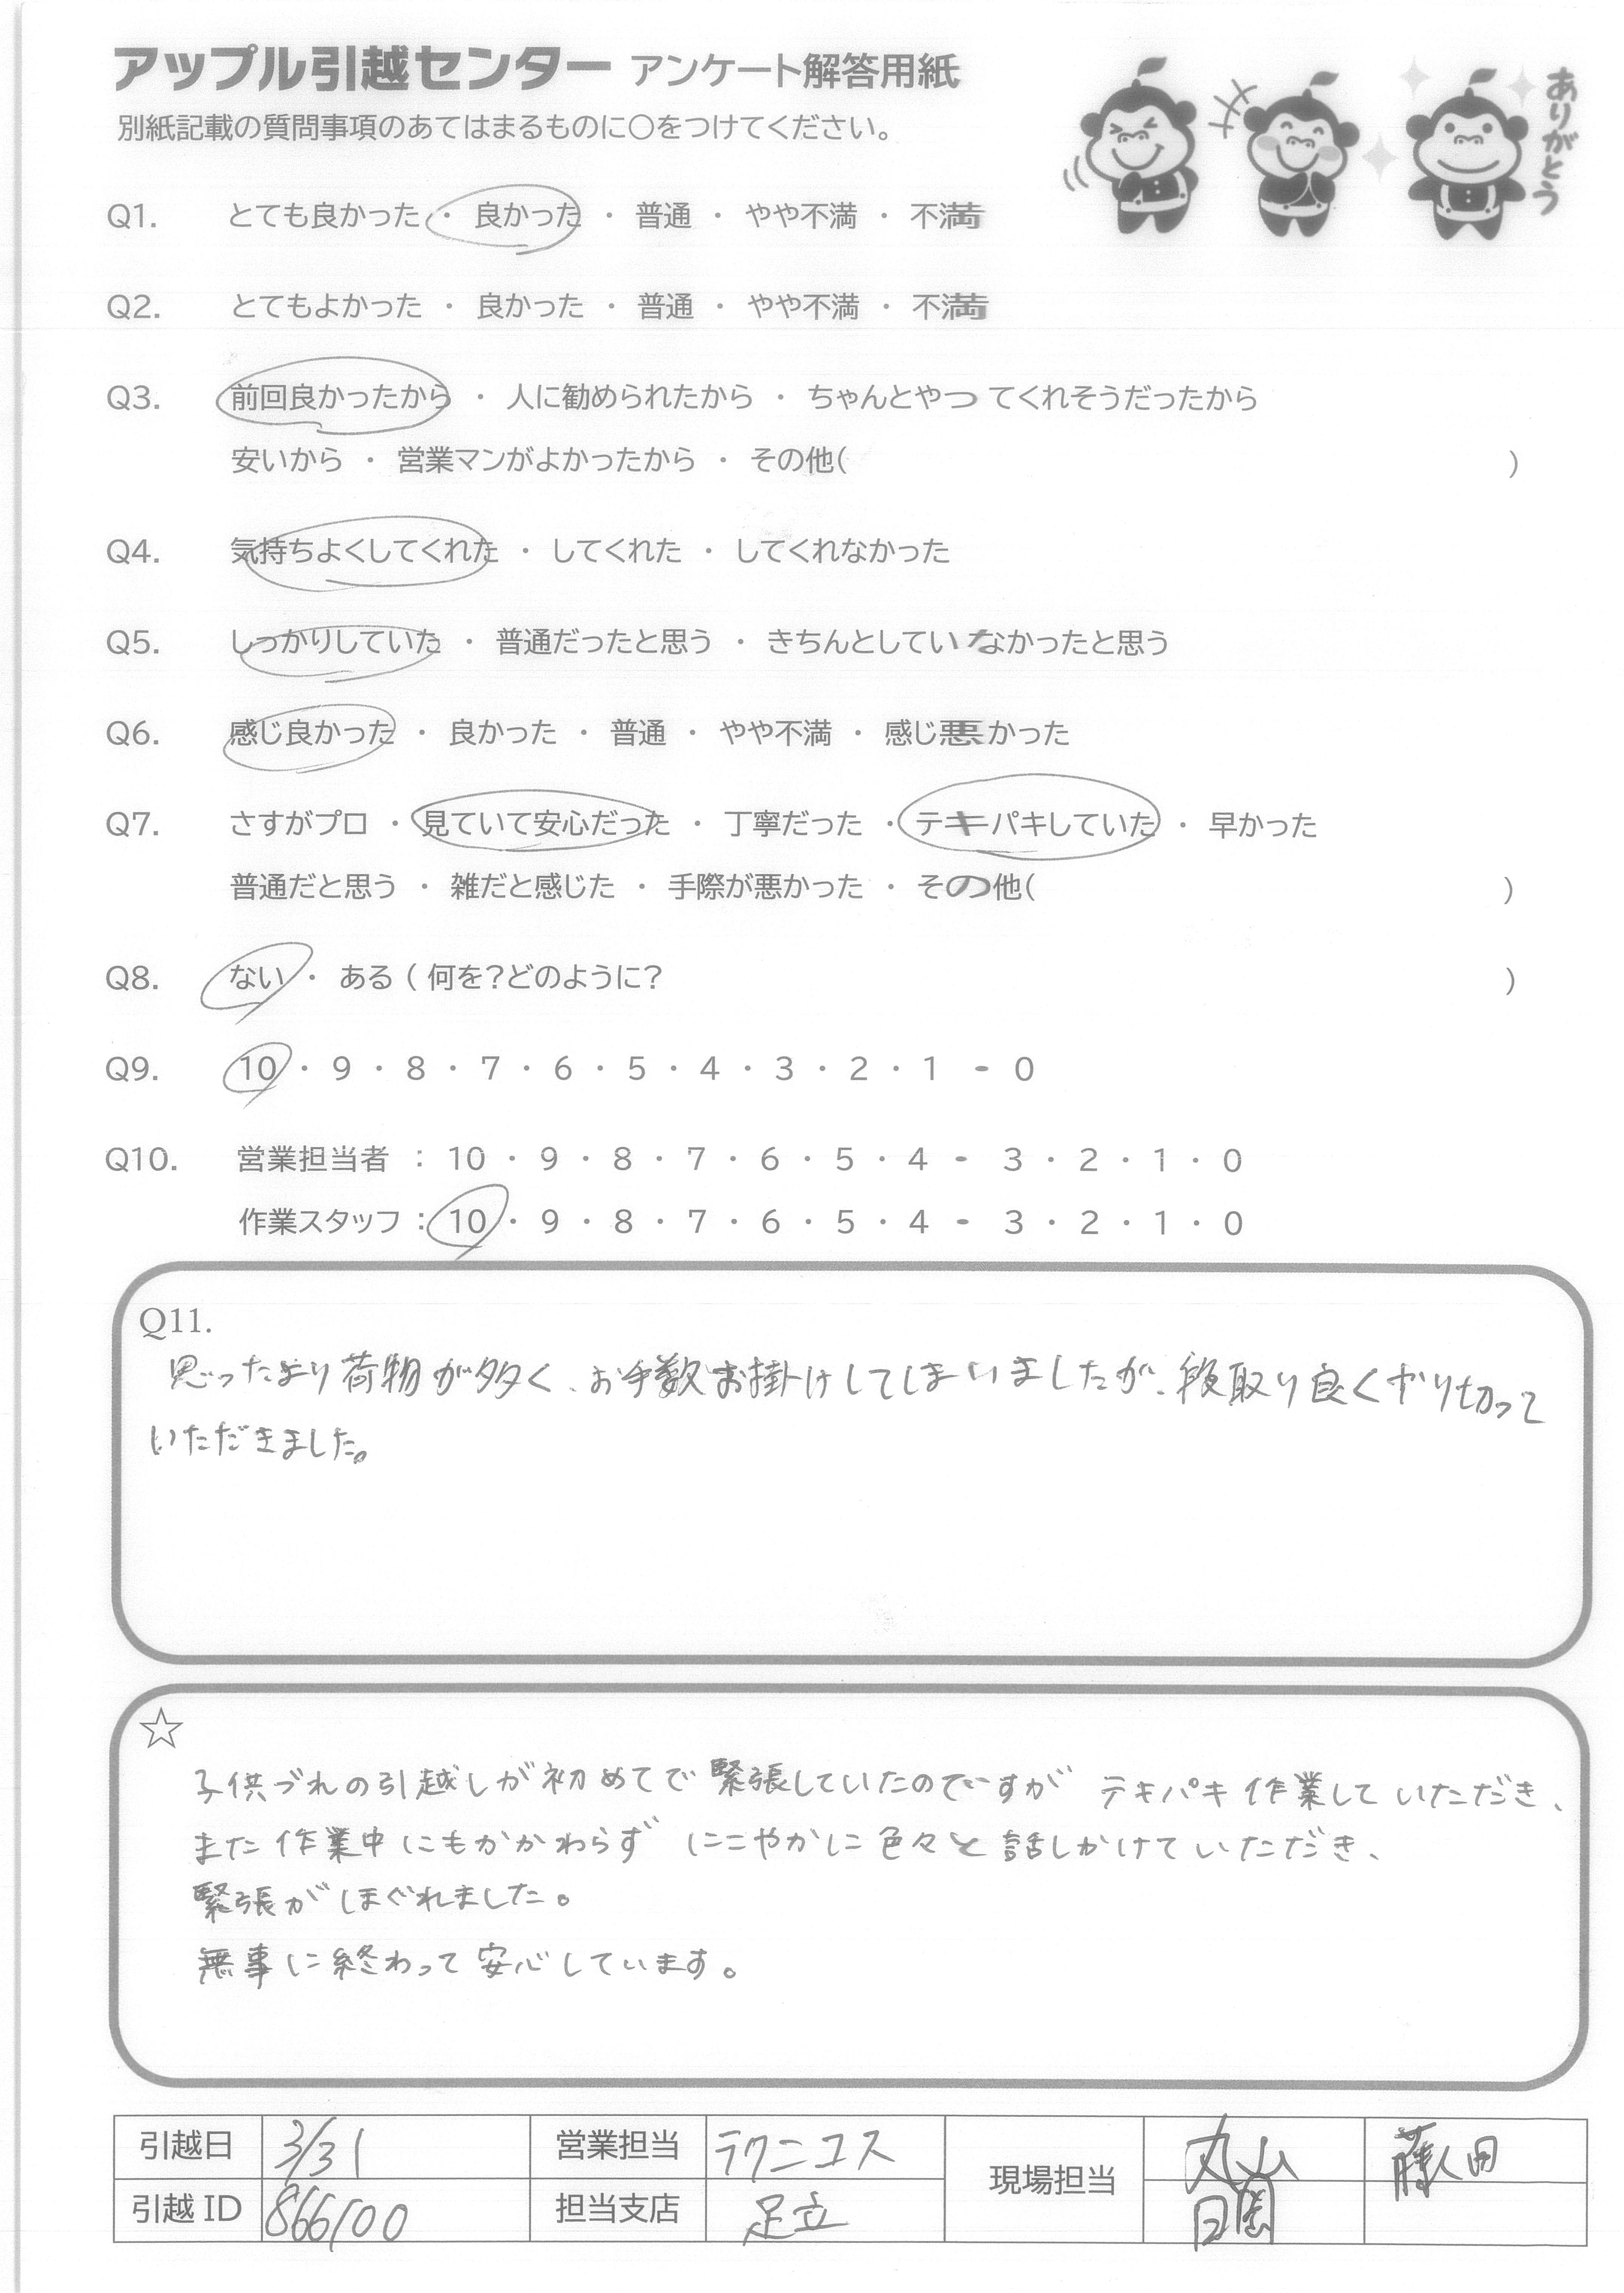 アップル引越センター アンケート解答用紙
ありがとう
別紙記載の質問事項のあてはまるものに○をつけてください。
Q1. とても良かった ・ 良かった ・ 普通 ・ やや不満 ・ 不満
Q2. とてもよかった ・ 良かった ・ 普通 ・ やや不満 ・ 不満
Q3. 前回良かったから ・ 人に勧められたから ・ ちゃんとやってくれそうだったから
安いから ・ 営業マンがよかったから ・ その他( )
Q4. 気持ちよくしてくれた ・ してくれた ・ してくれなかった
Q5. しっかりしていた ・ 普通だったと思う ・ きちんとしていなかったと思う
Q6. 感じ良かった ・ 良かった ・ 普通 ・ やや不満 ・ 感じ悪かった
Q7. さすがプロ ・ 見ていて安心だった ・ 丁寧だった ・ テキパキしていた ・ 早かった
普通だと思う ・ 雑だと感じた ・ 手際が悪かった ・ その他( )
Q8. ない ・ ある ( 何を?どのように? )
Q9. 10 ・ 9 ・ 8 ・ 7 ・ 6 ・ 5 ・ 4 ・ 3 ・ 2 ・ 1 ・ 0
Q10. 営業担当者 : 10 ・ 9 ・ 8 ・ 7 ・ 6 ・ 5 ・ 4 ・ 3 ・ 2 ・ 1 ・ 0
作業スタッフ : 10 ・ 9 ・ 8 ・ 7 ・ 6 ・ 5 ・ 4 ・ 3 ・ 2 ・ 1 ・ 0
Q11.
思ったより荷物が多く、お手数お掛けしてしまいましたが、段取り良くやり切って
いただきました。
☆
子供づれの引越しが初めてで緊張していたのですが テキパキ作業していただき、
また作業中にもかかわらず にこやかに色々と話しかけていただき、
緊張がほぐれました。
無事に終わって安心しています。
引越日 3/31 営業担当 ラクニコス 現場担当 丸山 藤田
引越ID 866100 担当支店 足立